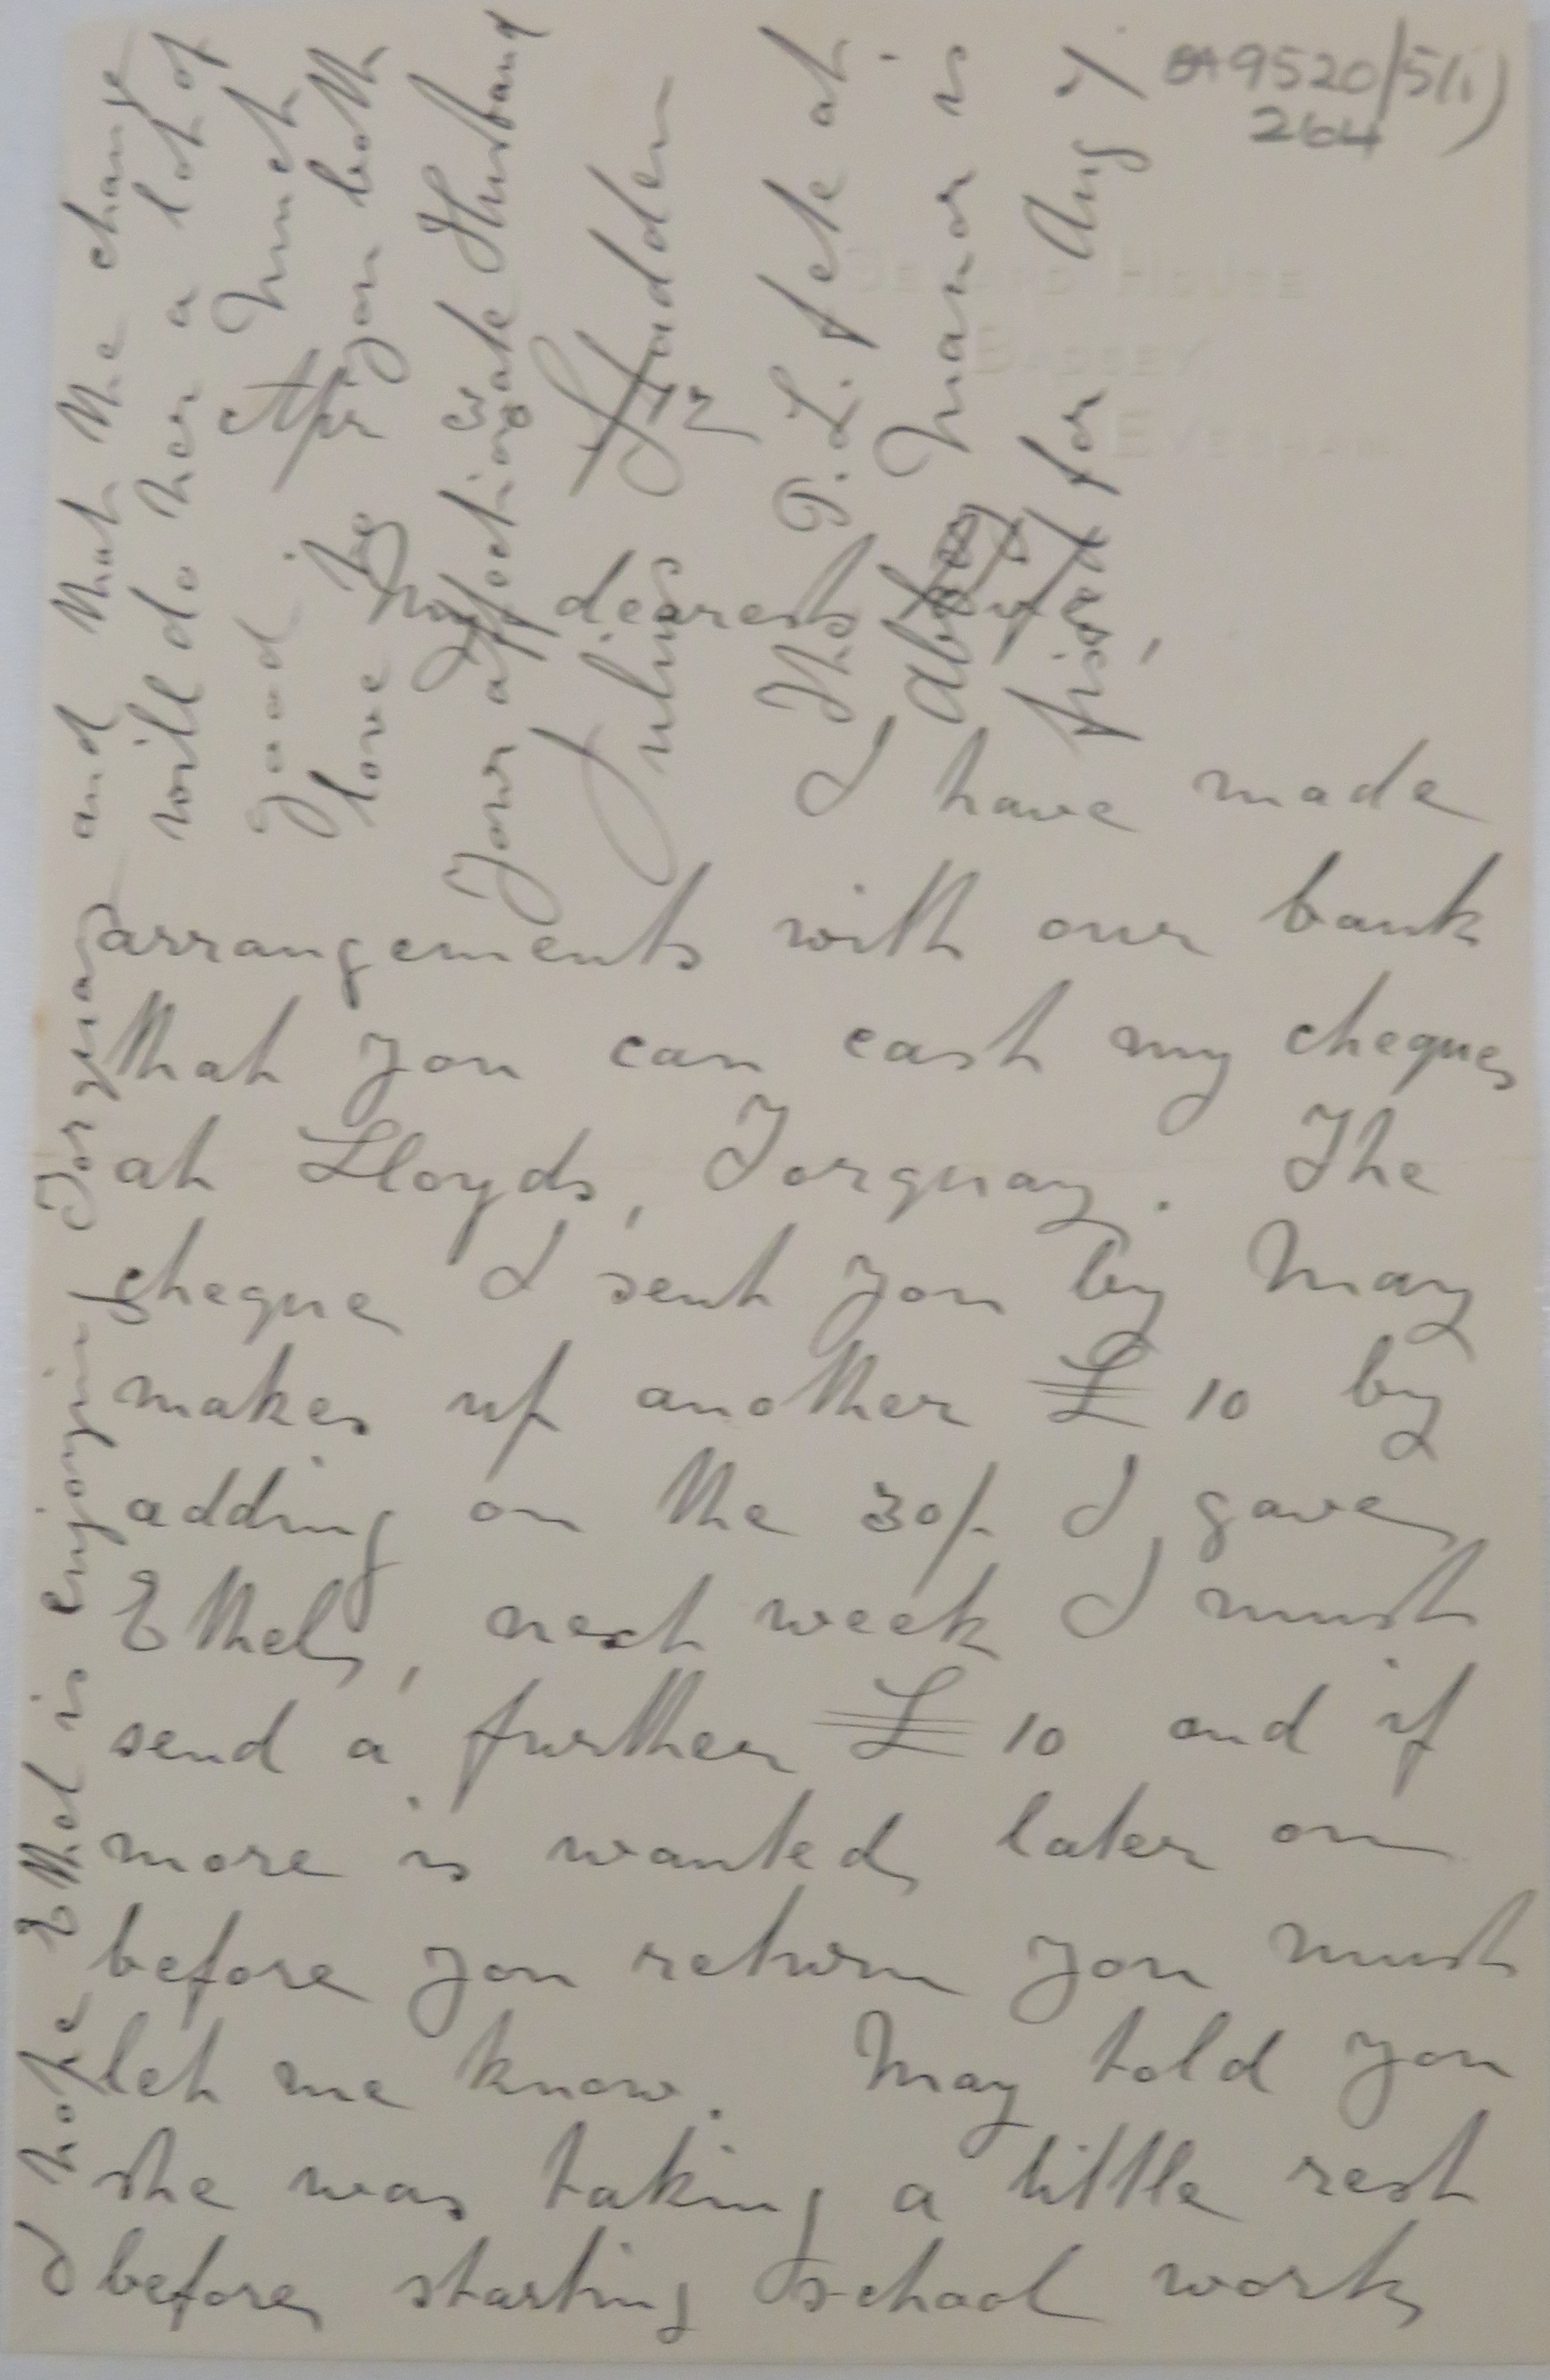 9520/5(i)
264
Seward House
Badsey
Evesham
My dearest love,
I have made
arrangements with our bank
that you can cash my cheques
at Lloyds, Torquay. The
cheque I sent you by May
makes up another £10 by
adding on the 30/- I gave
Ethel, next week I must
send a further £10 and if
more is wanted later on
before you return you must
let me know. May told you
she was taking a little rest
before starting school work
I hope Ethel is enjoying Torquay and that the change
will do her a lot of
good. Much
love to you both
Your affectionate Husband
Julius Sladden
The P.L. fete at
Abbey Manor is
fixed for Aug